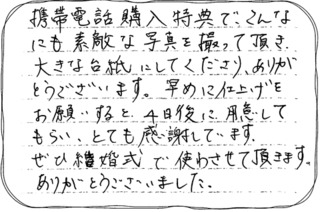 携帯電話購入特典で、こんな
にも素敵な写真を撮って頂き
大きな台紙にしてくださり、ありが
とうございます。早めに仕上げを
お願いすると、4日後に用意して
もらい、とても感謝しています。
ぜひ結婚式で使わさせて頂きます。
ありがとうございました。